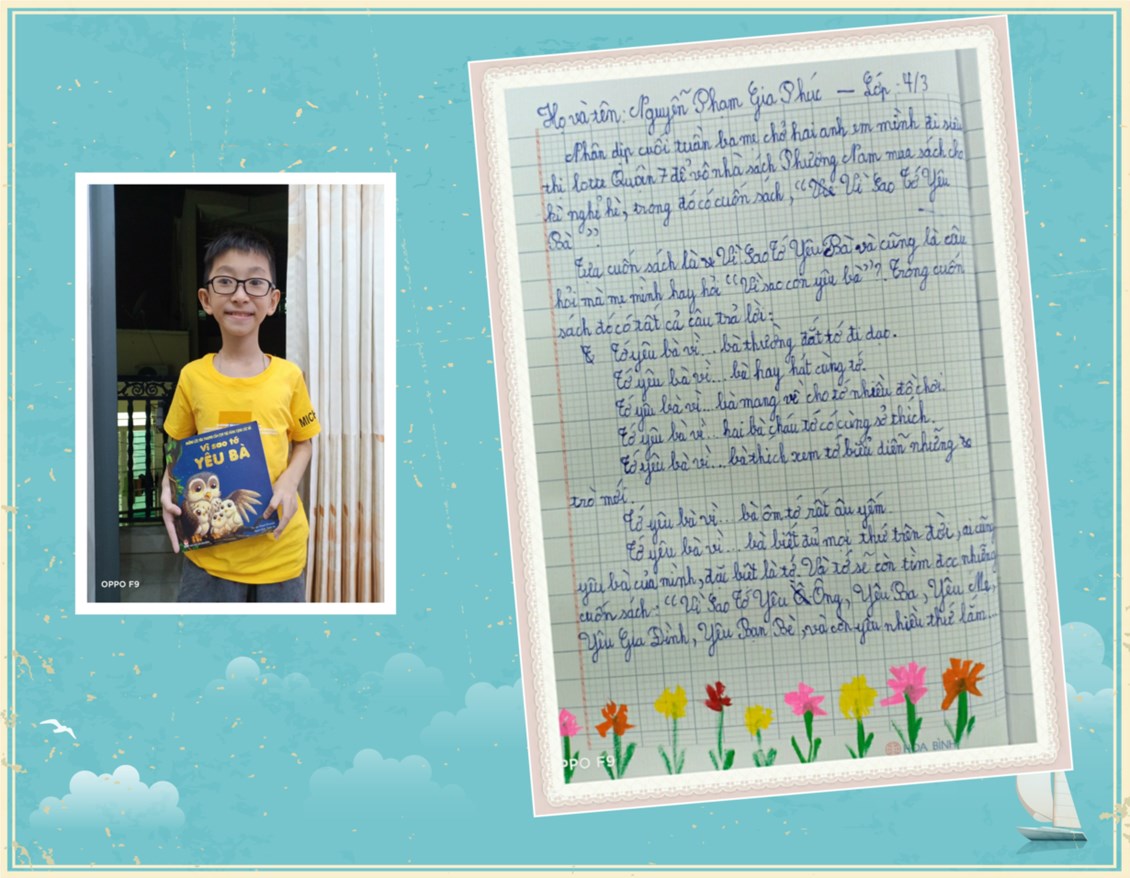 Vì sao tớ
YÊU BÀ
MICH
OPPO F9
Họ và tên: Nguyễn Phạm Gia Phúc — Lớp: 4/3
Nhân dịp cuối tuần ba mẹ chở hai anh em mình đi siêu
thị lotte Quận 7 để vô nhà sách Phương Nam mua sách cho
kì nghỉ hè, trong đó có cuốn sách, "Vì Sao Tớ Yêu
Bà".
Tựa cuốn sách là Vì Sao Tớ Yêu Bà và cũng là câu
hỏi mà mẹ mình hay hỏi "Vì sao con yêu bà"? Trong cuốn
sách đó có tất cả câu trả lời:
Tớ yêu bà vì... bà thường dắt tớ đi dạo.
Tớ yêu bà vì... bà hay hát cùng tớ.
Tớ yêu bà vì... bà mang về cho tớ nhiều đồ chơi.
Tớ yêu bà vì... hai bà cháu tớ có cùng sở thích.
Tớ yêu bà vì... bà thích xem tớ biểu diễn những
trò mới.
Tớ yêu bà vì... bà ôm tớ rất âu yếm.
Tớ yêu bà vì... bà biết đủ mọi thứ trên đời, ai cũng
yêu bà của mình, đặc biệt là tớ. Và tớ sẽ còn tìm đọc những
cuốn sách: "Vì Sao Tớ Yêu Ông, Yêu Ba, Yêu Mẹ,
Yêu Gia Đình, Yêu Bạn Bè, và còn yêu nhiều thứ lắm...
HOA BÌNH
OPPO F9